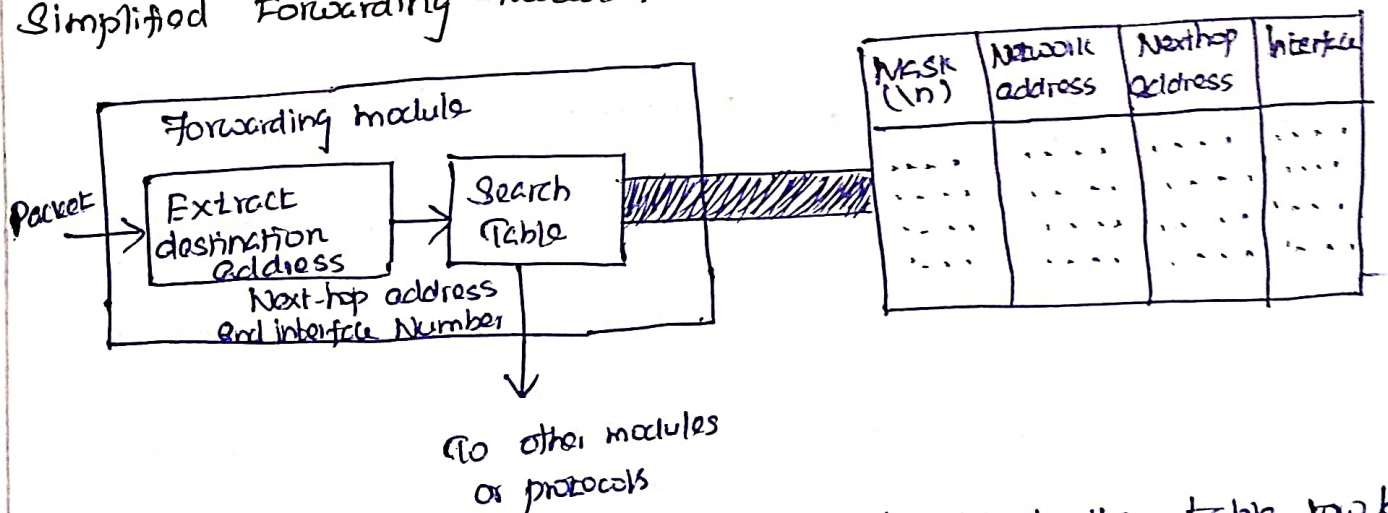 Simplified Forwarding
Forwarding module
Packet
Extract
destination
address
Search
Table
Next-hop address
and interface Number
To other modules
or protocols
Mask
(\n)
Network
address
Nexthop
address
Interface
table